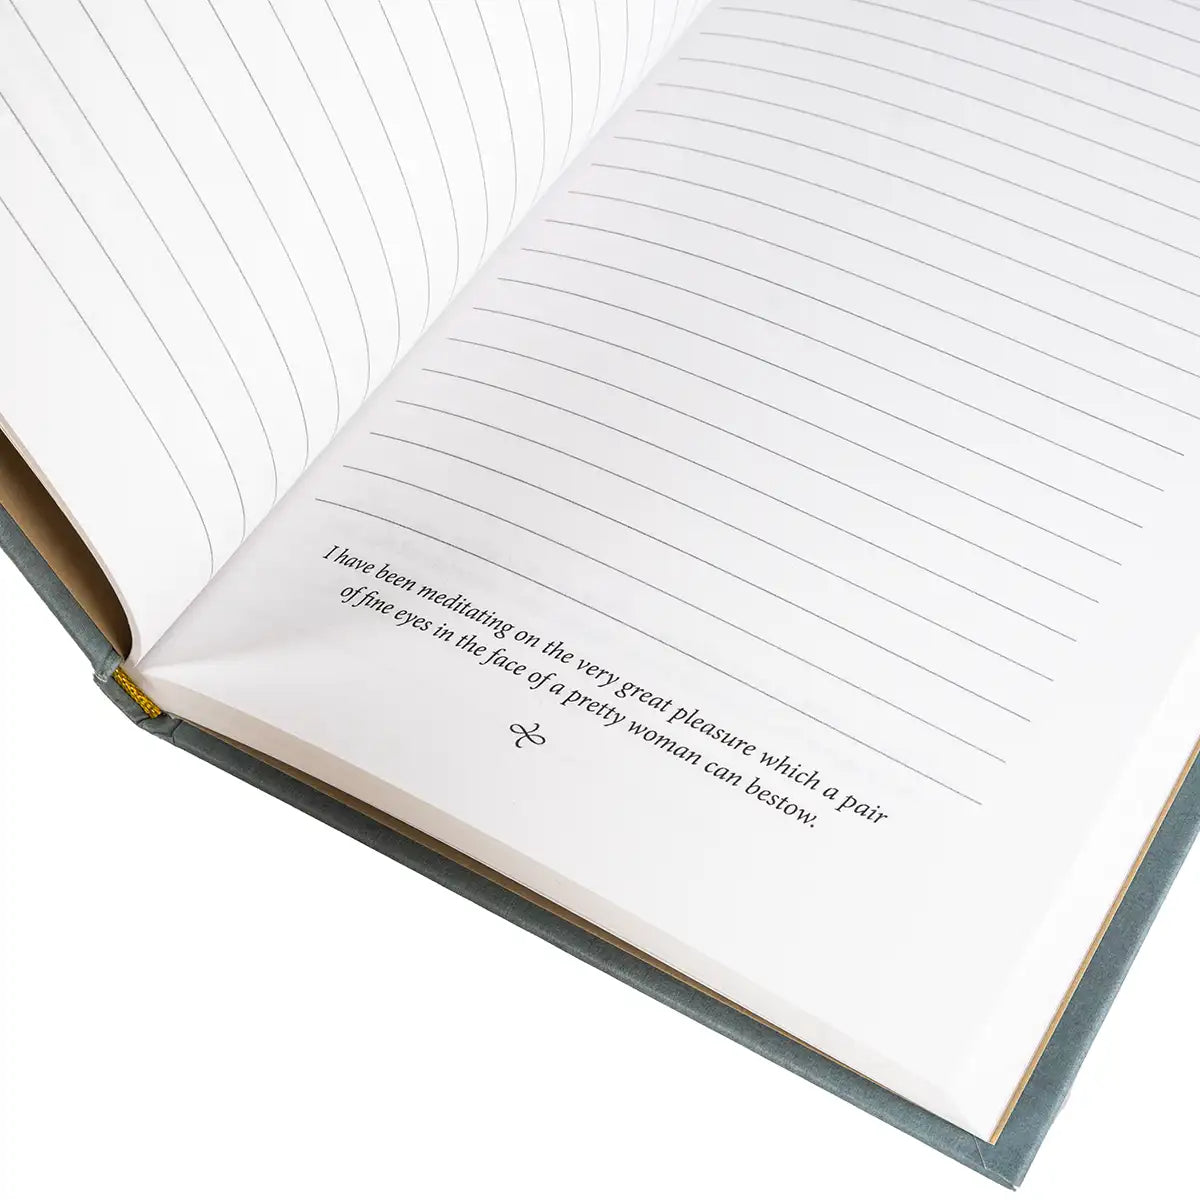 I have been meditating on the very great pleasure which a pair
of fine eyes in the face of a pretty woman can bestow.